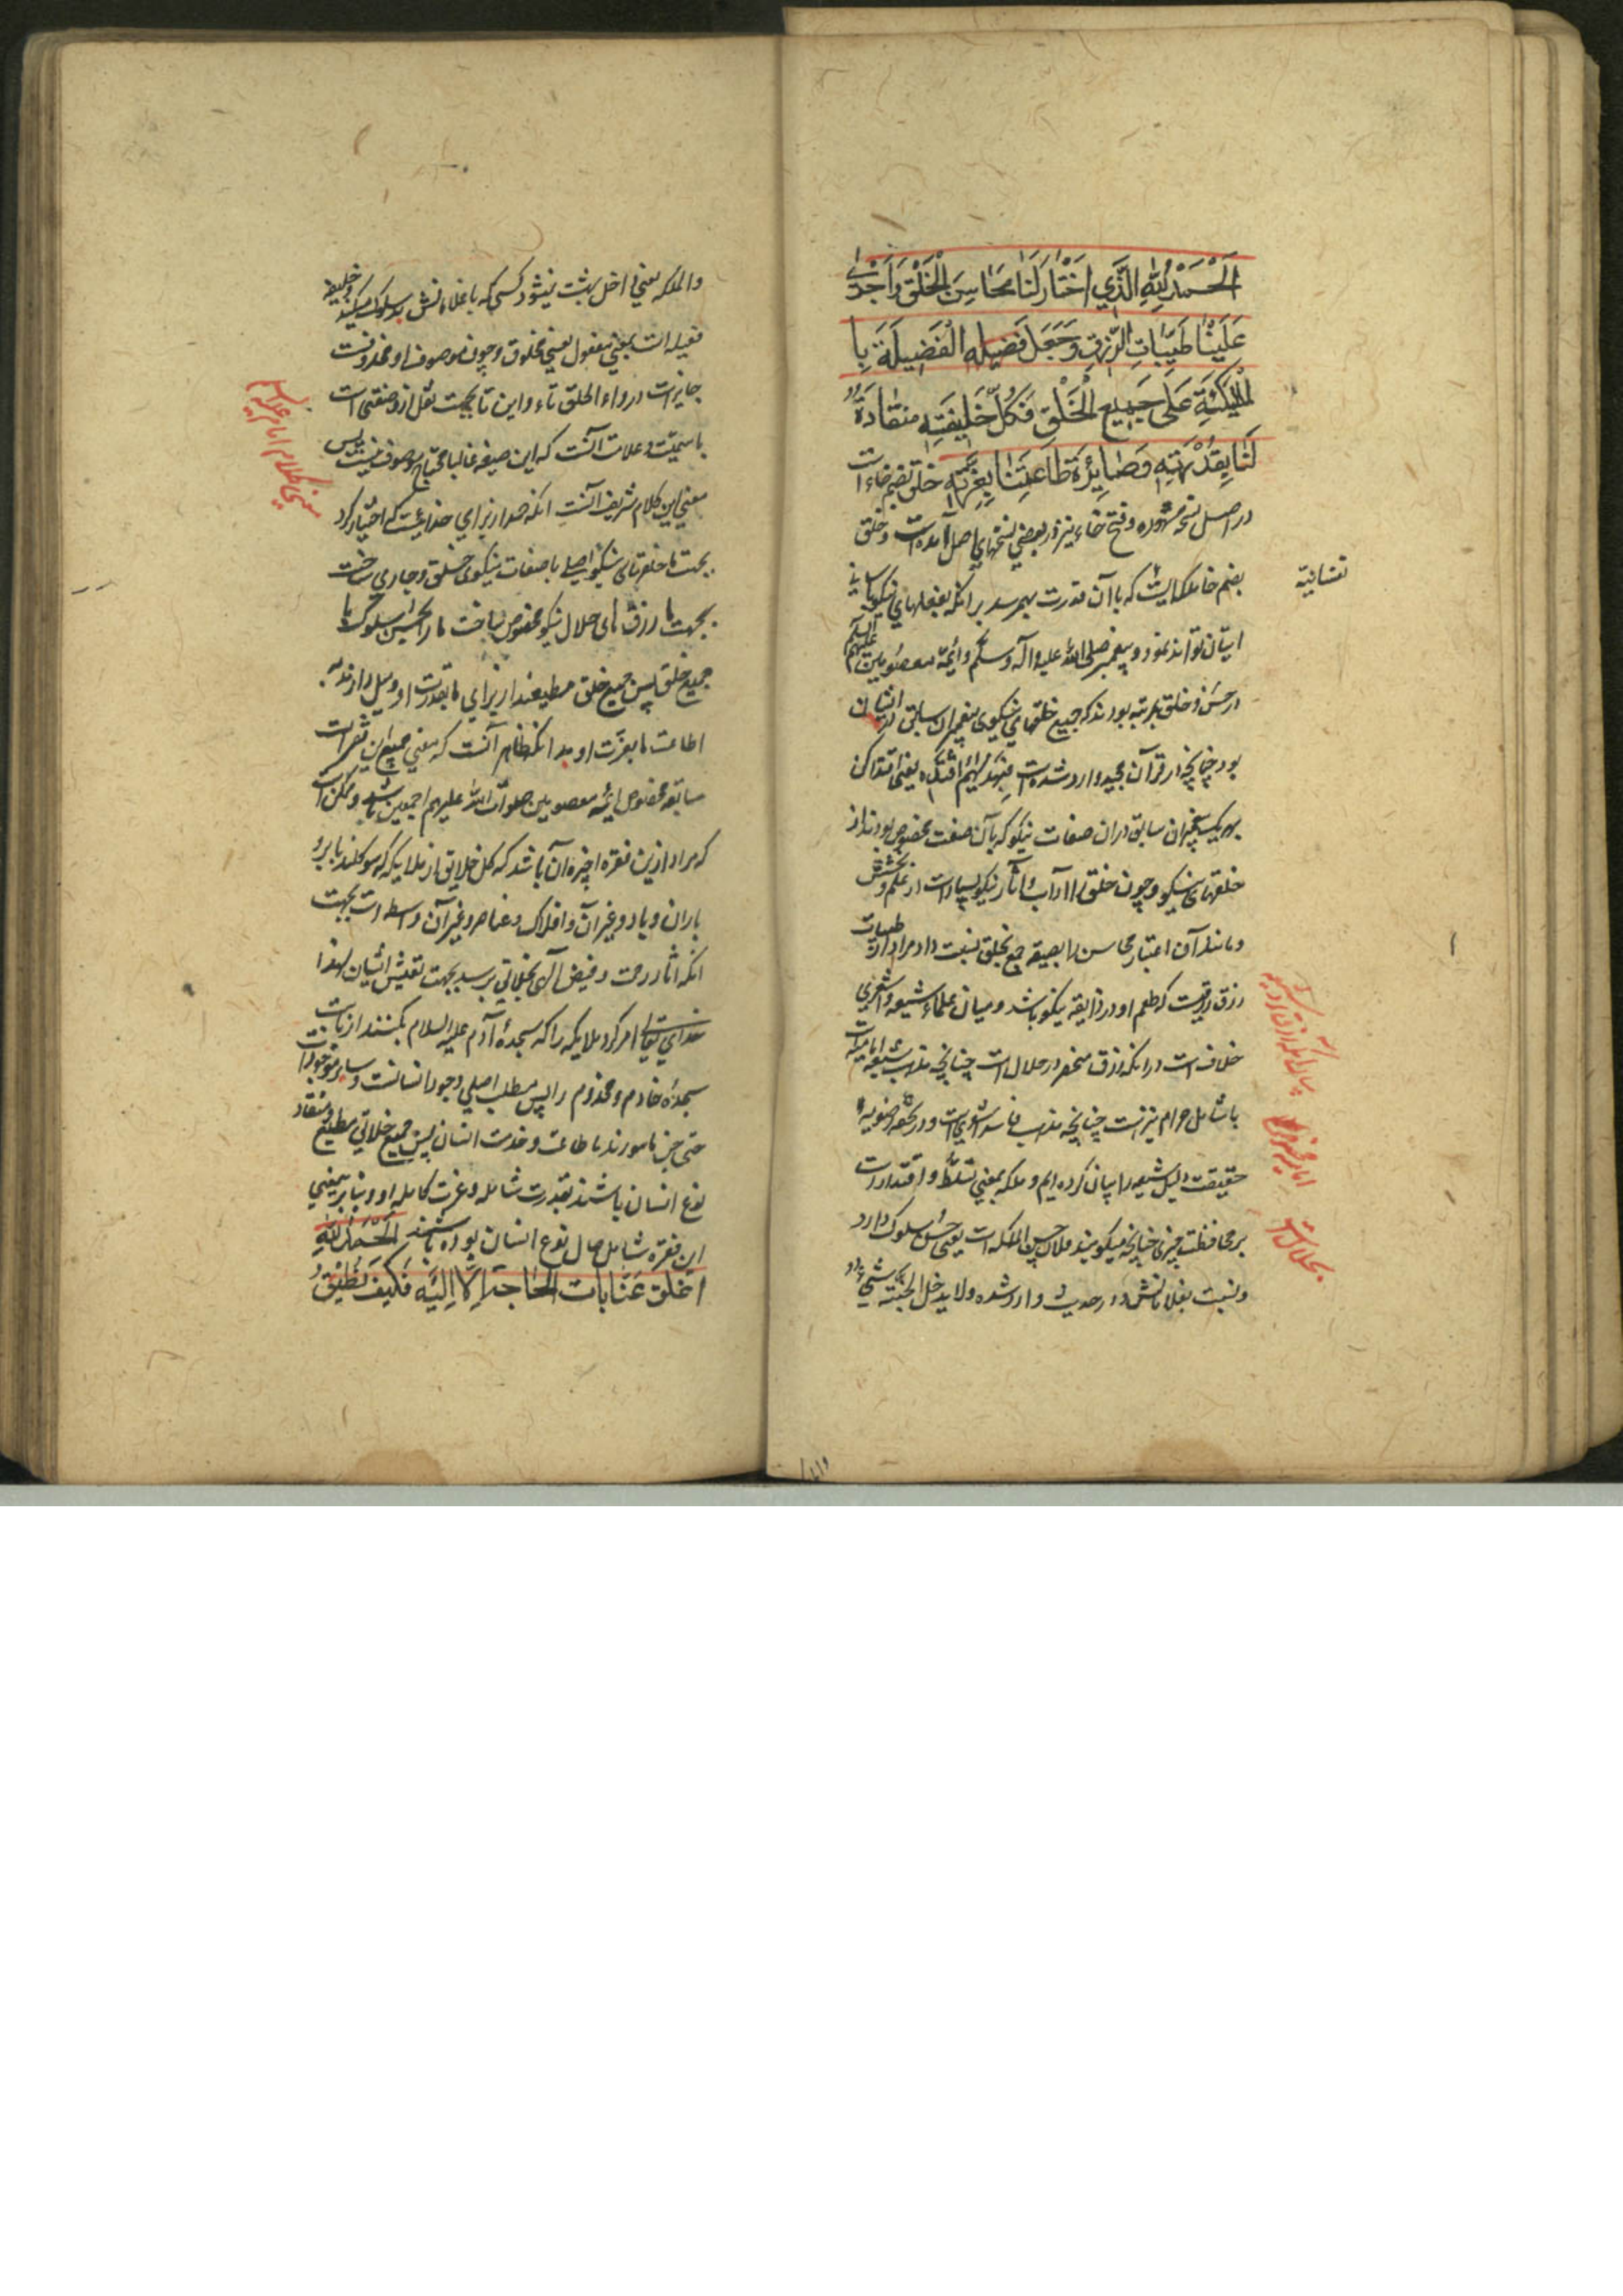 اَلْحَمْدُ لِلّٰهِ الَّذِي اخْتَارَ لَنَا مَحَاسِنَ الْخَلْقِ وَاَجْرٰی
عَلَيْنَا طَيِّبَاتِ الرِّزْقِ وَجَعَلَ الْفَضِيلَةَ بِا
لْمَلَكَةِ عَلٰى جَمِيعِ الْخَلْقِ فَكُلُّ خَلِيقَتِهِ مُنْقَادَةٌ
لَنَا بِقُدْرَتِهِ وَصَايِرَةٌ طَاعَتِنَا بِعِزَّتِهِ خلق بضم خاء است
در اصل نسخه مشهوره و فتح خاء نیز در بعضی نسخهای اصل آمده است و خلق
بضم خا ملکه ایست که با آن قدرت بهم رسد برانکه بفعلهای نیکو باسانی
نفسانیّه
ایشان توانند نمود و پیغمبر صلی الله علیه و آله و سلم و ائمّه معصومین علیهم السلام
در حسن خلق بمرتبه بودند که جمیع خلقهای نیکوی پیغمبران سابق در ایشان
بود چنانچه در قرآن مجید وارد شده است فبهدیهم اقتده یعنی اقتدا کن
بهر یک پیغمبران سابق در ان صفات نیکو که بآن صفت مخصوص بودند از
خلقهای نیکو و چون خلق را آداب و آثار نیکو بسیار است از علم و بخشش
و مانند آن اعتبار محاسن را بصیغه جمع بخلق نسبت داد مراد از طیبات
رزق رزقیست که طعم او در ذایقه نیکو باشد و میان علماء شیعه و اشعری
خلاف است در انکه رزق منحصر در حلال است چنانچه مذهب شیعه امامیه است
یا شامل حرام نیز است چنانچه مذهب فاسد اشعریست و در تحفه رضویه
حقیقت دلیل شیعه را بیان کرده ایم و ملکه بمعنی تسلّط و اقتدار است
بر محافظت چیزی چنانچه میگویند فلان حسن الملکه است یعنی حسن سلوک دارد
و نسبت بغلامانش و در حدیث وارد شده و لا یدخل الجنّة سیّئ
والملکه یعنی داخل بهشت نمیشود کسی که با غلامانش بد سلوک میکند و خلیقه
فعیله است بمعنی مفعول یعنی مخلوق و چون موصوف او محذوفست
جایز است در و الحاق تاء و این تا بجهت نقل از وصفتی است
باسمیّت و علامت آنست که این صیغه غالبا محتاج بموصوف نیست پس
معنی این کلام شریف آنست انکه حمد از برای خدائیست که اختیار کرد
معنی کلام امام علیه السلام
بجهت ما خلقهای نیکو یعنی با صفات نیکوی خلق و جاری ساخت
بجهت ما رزق های حلال نیکو مخصوص ساخت ما را بحسن سلوک با
جمیع خلق پس جمیع خلق مطیعند از برای ما بقدرت او و میل دارند به
اطاعت ما بعزّت او بدانکه ظاهر آنست که معنی جمیع این فقرات
سابقه مخصوص ایمّه معصومین صلوات الله علیهم اجمعین باشد و ممکن است
که مراد ازین فقره اخیره آن باشد که کل خلایق از ملایکه که موکلند بابر و
باران و باد و غیر آن و افلاک و عناصر و غیر آن واسطه است بجهت
انکه اثار رحمت و فیض الهی بخلایق برسد بجهت تعیش انسان لهذا
خدای تعالی امر کرد ملایکه را که سجدهٔ آدم علیه السلام بکنند از بابت
سجدهٔ خادم و مخدوم را پس مطلب اصلی وجود انسانست و سایر موجودات
حتی جن مامورند باطاعت و خدمت انسان پس جمیع خلایق مطیع و منقاد
نوع انسان باشند بقدرت شامله و عزت کامله او و بنابر یعنی
این فقره شامل حال نوع انسان بوده باشد اَلْحَمْدُ لِلّٰهِ
اَغْلَقَ عَنَّا بَابَ الْحَاجَةِ اِلَّا اِلَيْهِ فَكَيْفَ نُطِيقُ